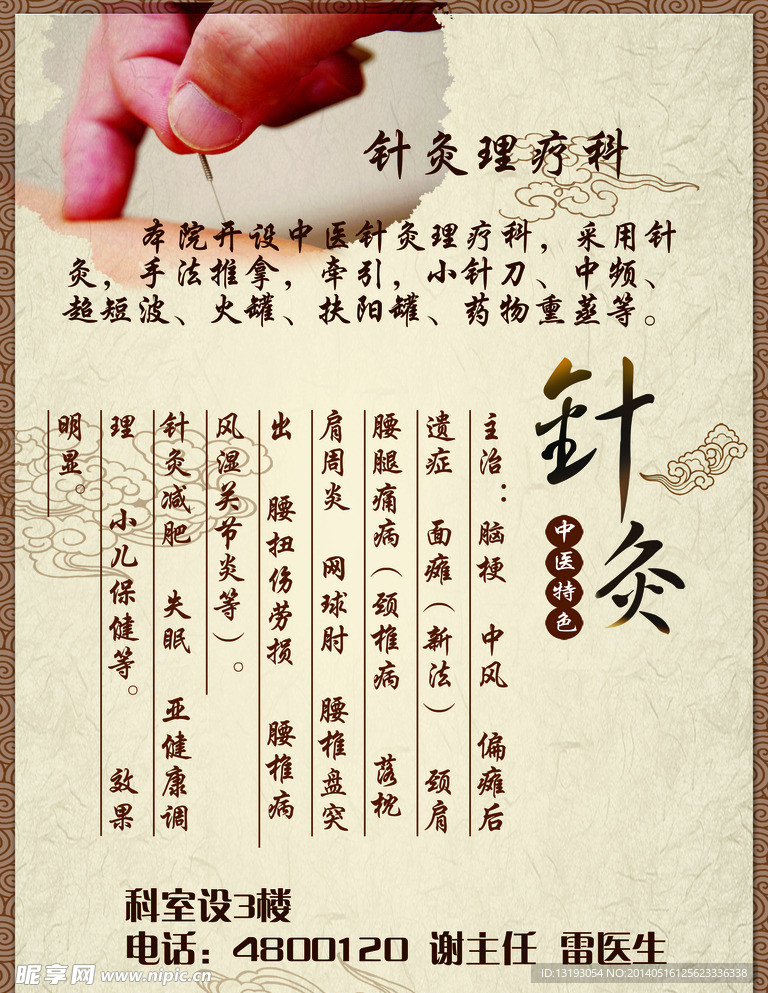 针灸理疗科
本院开设中医针灸理疗科，采用针
灸，手法推拿，牵引，小针刀、中频、
超短波、火罐、扶阳罐、药物熏蒸等。
針灸
中医特色
主治：脑梗 中风 偏瘫后
遗症 面瘫（新法） 颈肩
腰腿痛病（颈椎病 落枕
肩周炎 网球肘 腰椎盘突
出 腰扭伤劳损 腰椎病
风湿关节炎等）。
针灸减肥 失眠 亚健康调
理 小儿保健等。 效果
明显。
科室设3楼
电话：4800120 谢主任 雷医生
昵享网 www.nipic.cn
ID:13193054 NO:20140516125623336338